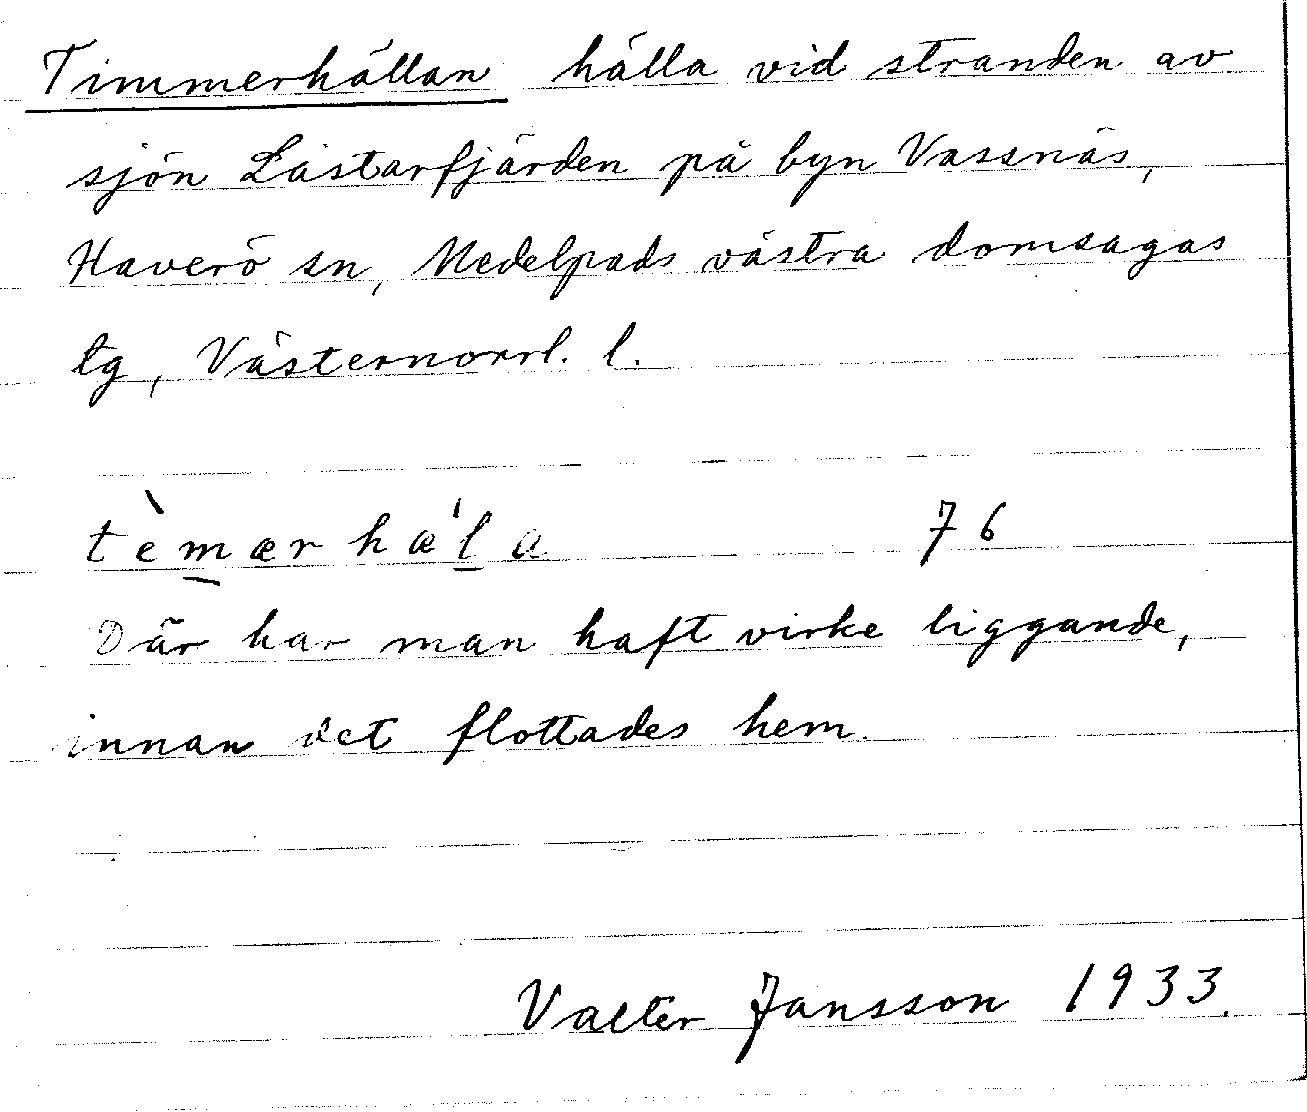 Timmerhällan hälla vid stranden av
sjön Lästarfjärden på byn Vassnäs,
Haverö sn, Medelpads västra domsagas
tg, Västernorrl. l.
tèmærhæ'la 76
Där har man haft virke liggande,
innan det flottades hem.
Valter Jansson 1933.